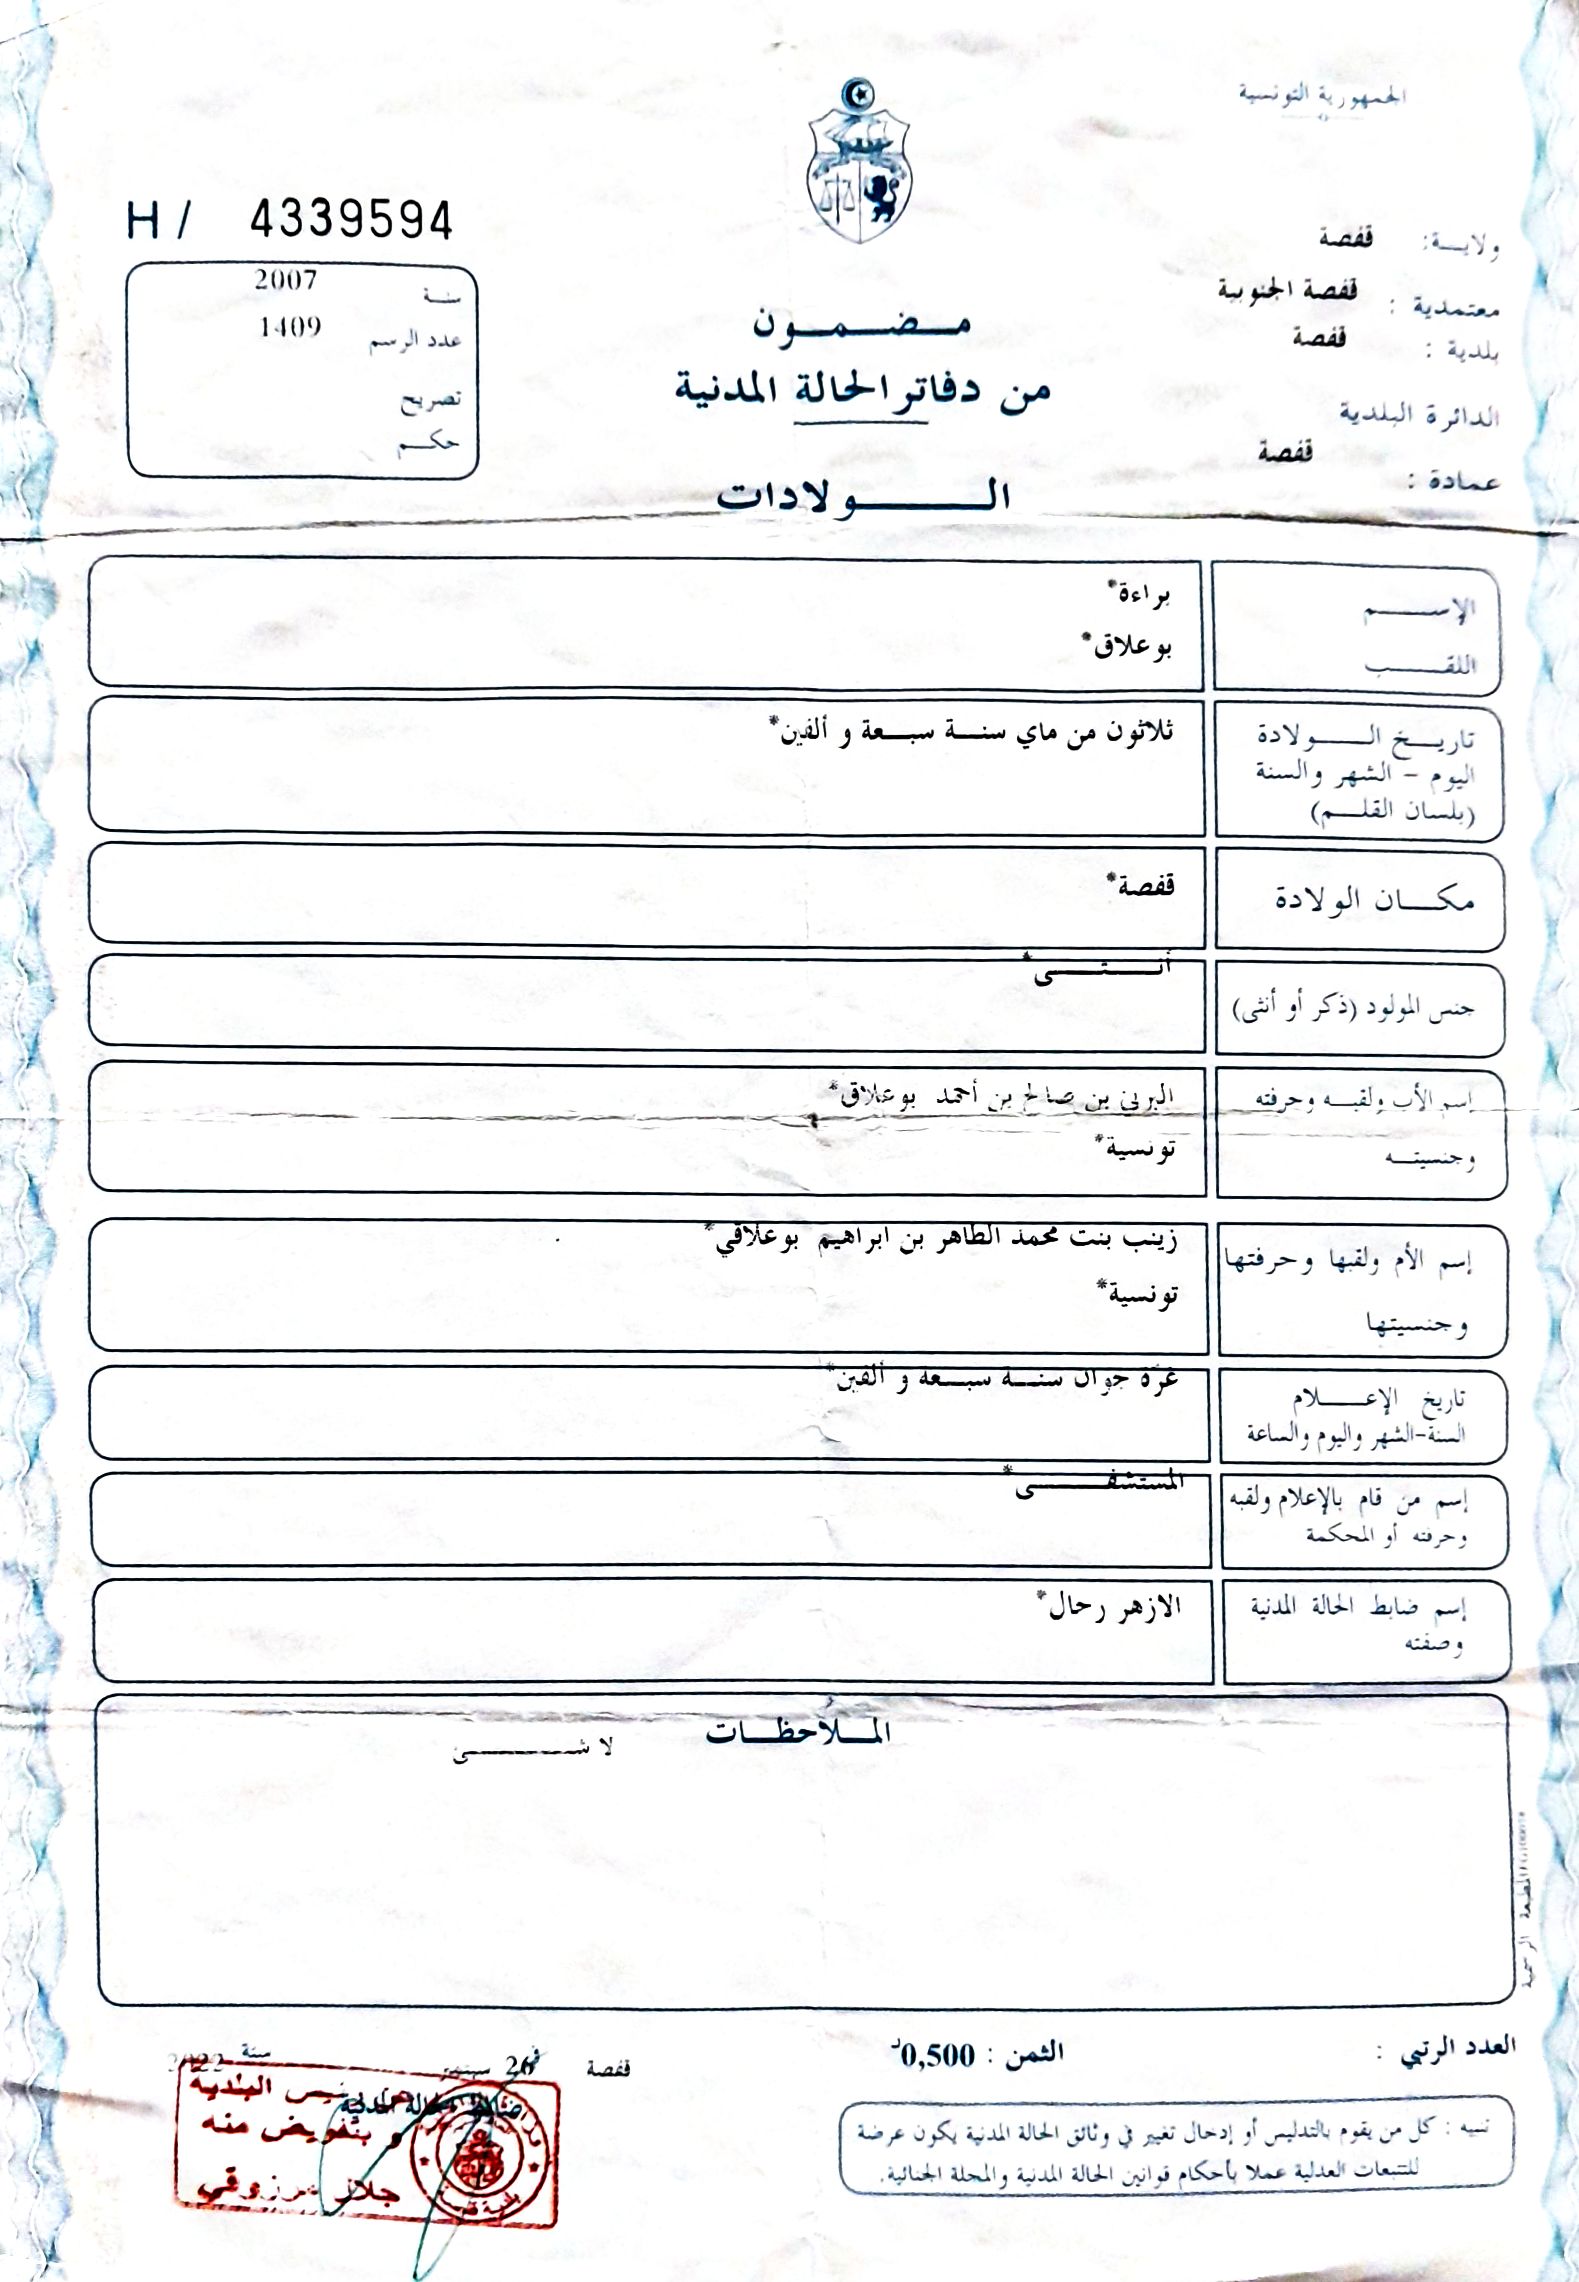 الجمهورية التونسية
H / 4339594
ولايــة: قفصة
معتمدية : قفصة الجنوبية
بلدية : قفصة
الدائرة البلدية
قفصة
عمادة :
سنـة 2007
عدد الرسم 1409
تصريح
حكـم
مـضـمـون
من دفاتر الحالة المدنية
الـــولادات
الإســـم براءة*
اللقــب بوعلاق*
تاريـخ الــولادة ثلاثون من ماي سنـة سبـعة و ألفين*
اليوم - الشهر والسنة
(بلسان القلـم)
مكــان الولادة قفصة*
جنس المولود (ذكر أو أنثى) أنـــثـــى*
إسم الأب ولقبـه وحرفته البرني بن صالح بن أحمد بوعلاق*
وجنسيتـه تونسية*
إسم الأم ولقبها وحرفتها زينب بنت محمد الطاهر بن ابراهيم بوعلاقي*
وجنسيتها تونسية*
تاريخ الإعـــلام غرّة جوان سنـة سبـعة و ألفين*
السنة-الشهر واليوم والساعة
إسم من قام بالإعلام ولقبه المستشفـــى*
وحرفته أو المحكمة
إسم ضابط الحالة المدنية الازهر رحال*
وصفته
المـلاحظـات
لا شـــئ
المطبعة الرسمية
العدد الرتبي :
الثمن : 0,500د
قفصة في 26 سبتمبر سنة
تنبيه : كل من يقوم بالتدليس أو إدخال تغيير في وثائق الحالة المدنية يكون عرضة
للتتبعات العدلية عملا بأحكام قوانين الحالة المدنية والمجلة الجنائية.
عن رئيس البلدية
و بتفويض منه
مرزوقي